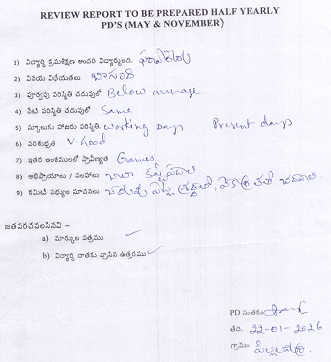 REVIEW REPORT TO BE PREPARED HALF YEARLY
PD'S (MAY & NOVEMBER)
1) విద్యార్థి క్రమశిక్షణ అందరి విద్యార్థులది.
2) వినయ విధేయతలు బాగుంది
3) పూర్వపు పరిస్థితి చదువులో Below average
4) నేటి పరిస్థితి చదువులో Same
5) స్కూలుకు హాజరు పరిస్థితి. working days Present days
6) పరిశుభ్రత V. Good
7) ఇతర అంశములలో ప్రావీణ్యత Games
8) అభిప్రాయాలు / సలహాలు చాలా కష్టపడాలి
9) కమిటీ సభ్యుల సూచనలు
జతపరచవలసినవి -
a) మార్కుల పత్రము ✓
b) విద్యార్థి చాతకు వ్రాసిన ఉత్తరము ✓
PD సంతకం
తేది. 22-01-2026
గ్రామం